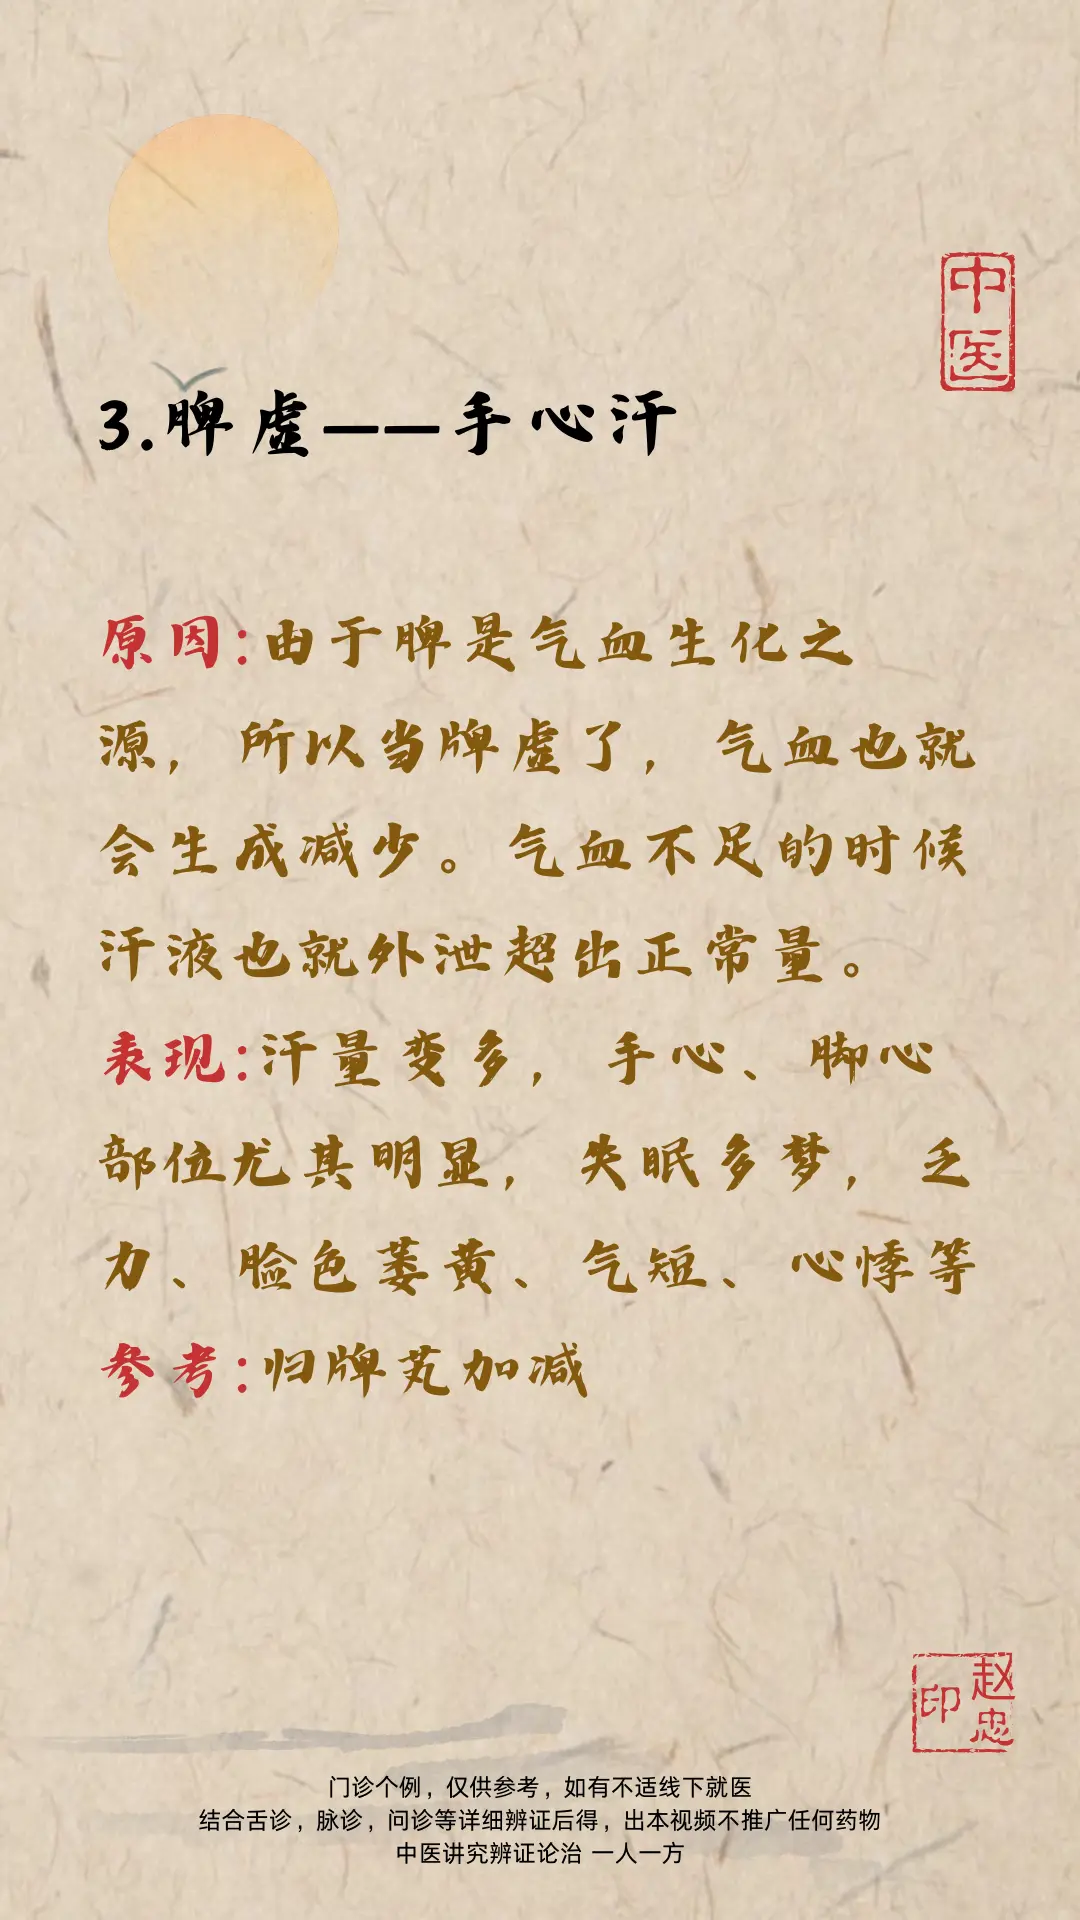 中医
3.脾虚——手心汗
原因:由于脾是气血生化之
源，所以当牌虚了，气血也就
会生成减少。气血不足的时候
汗液也就外泄超出正常量。
表现:汗量变多，手心、脚心
部位尤其明显，失眠多梦，乏
力、脸色萎黄、气短、心悸等
参考:归牌芄加减
赵忠印
门诊个例，仅供参考，如有不适线下就医
结合舌诊，脉诊，问诊等详细辨证后得，出本视频不推广任何药物
中医讲究辨证论治 一人一方